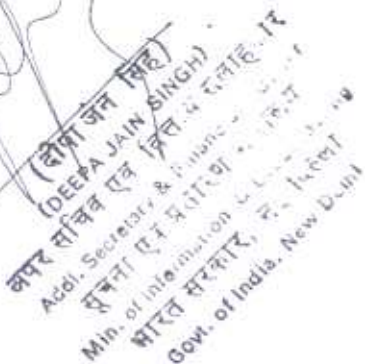 (दीपा जैन सिंह)
(DEEPA JAIN SINGH)
अपर सचिव एवं वित्तीय सलाहकार
Addl. Secretary & Financial
सूचना एवं प्रसारण
Min. of Information &
भारत सरकार, नई दिल्ली
Govt. of India, New Delhi